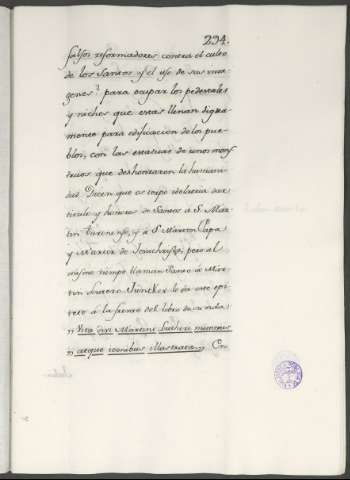 234.
falsos reformadores contra el culto
de los Santos y el uso de sus ima
genes? para ocupar los pedestales
y nichos que estas llenan digna
mente para edificacion de los pue-
blos, con las estatuas de unos mons
truos que deshonraron la humani
dad. Dicen que es torpe idolatria dar
titulo y honores de Santos á S. Mar-
tin Turonense, y á S. Martin Papa
y Martir de Jesuchristo, pero al
mismo tiempo llaman Santo a Mar-
tin Lutero. Juncker le da este epi
teto á la frente del libro de su vida:
"Vita divi Martini Lutheri nummis
" atque iconibus illustrata". En